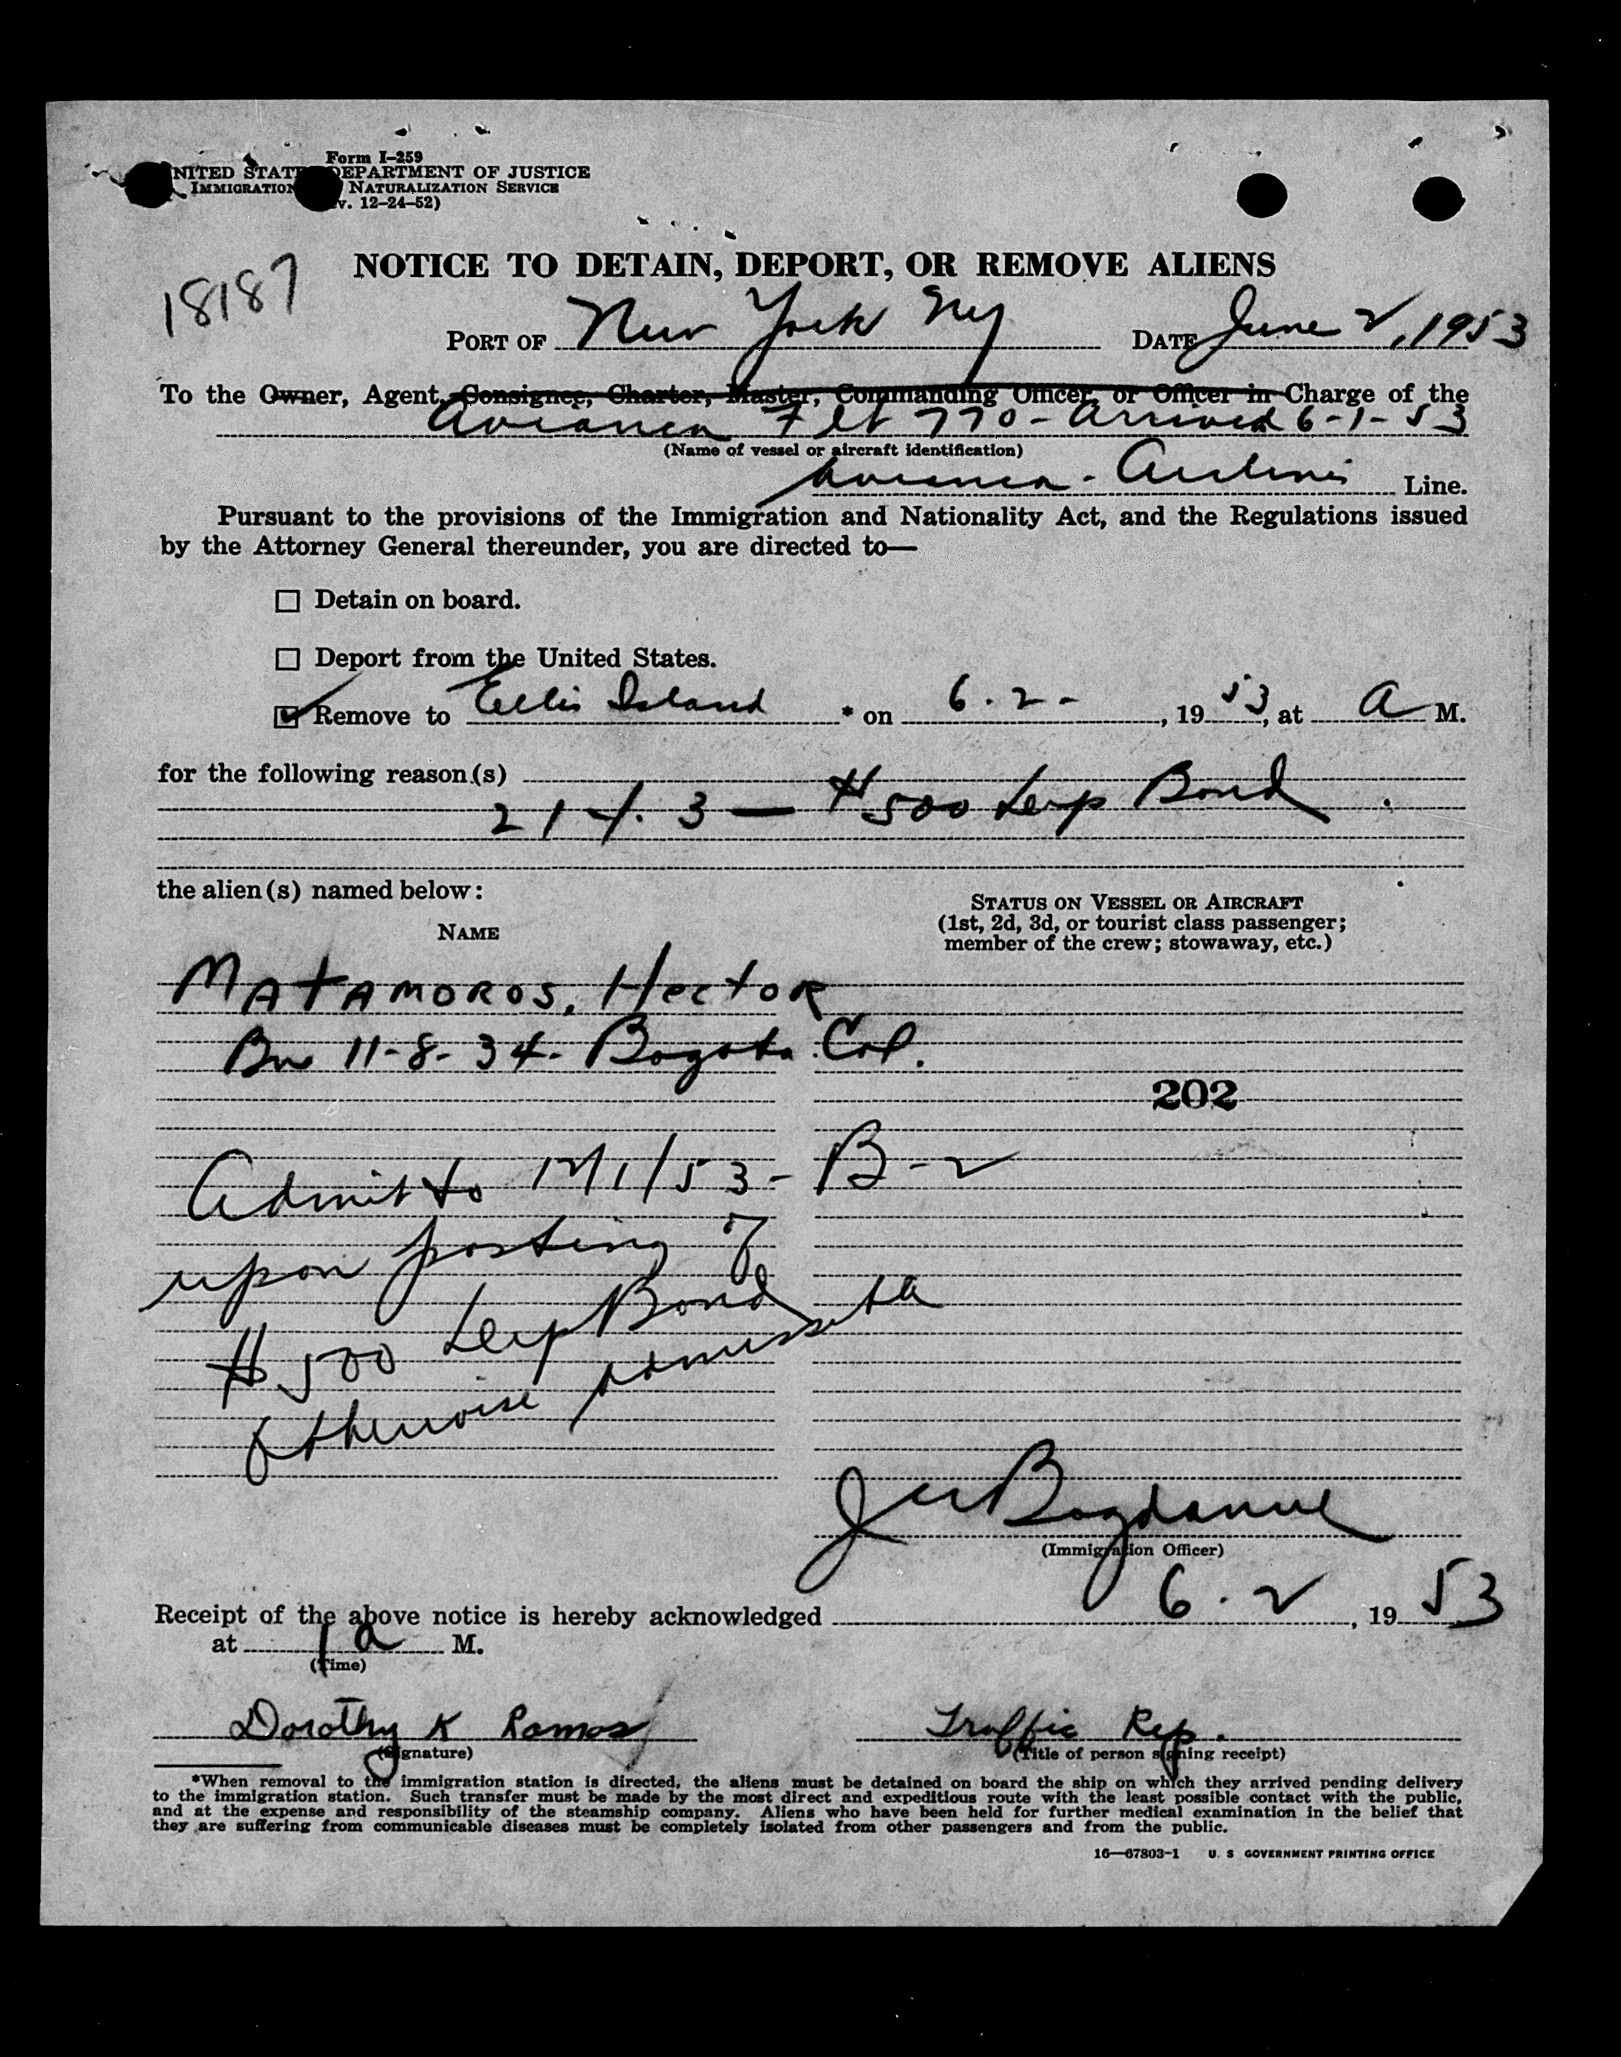 Form I-259
NITED STAT DEPARTMENT OF JUSTICE
IMMIGRATION NATURALIZATION SERVICE
v. 12-24-52)
18187
NOTICE TO DETAIN, DEPORT, OR REMOVE ALIENS
PORT OF New York NY DATE June 2, 1953
To the Owner, Agent, Consignee, Charter, Master, Commanding Officer, or Officer in Charge of the
Avianca Flt 770 - Arrived 6-1-53
(Name of vessel or aircraft identification)
Avianca - Airlines Line.
Pursuant to the provisions of the Immigration and Nationality Act, and the Regulations issued
by the Attorney General thereunder, you are directed to—
Detain on board.
Deport from the United States.
Remove to Ellis Island * on 6-2-, 1953, at A M.
for the following reason(s)
214.3 — $500 Bond
the alien(s) named below:
STATUS ON VESSEL OR AIRCRAFT
(1st, 2d, 3d, or tourist class passenger;
member of the crew; stowaway, etc.)
NAME
MATAMOROS, Hector
Bn 11-8-34- Bogota Col.
202
Admit to 12/1/53 - B-2
upon posting of
$500 Bond
otherwise admissible
(Immigration Officer)
Receipt of the above notice is hereby acknowledged 6-2, 1953
at 1 a M.
(Time)
Dorothy K Ramos Traffic Rep.
(Signature) (Title of person signing receipt)
*When removal to the immigration station is directed, the aliens must be detained on board the ship on which they arrived pending delivery
to the immigration station. Such transfer must be made by the most direct and expeditious route with the least possible contact with the public,
and at the expense and responsibility of the steamship company. Aliens who have been held for further medical examination in the belief that
they are suffering from communicable diseases must be completely isolated from other passengers and from the public.
16—67803-1 U. S GOVERNMENT PRINTING OFFICE